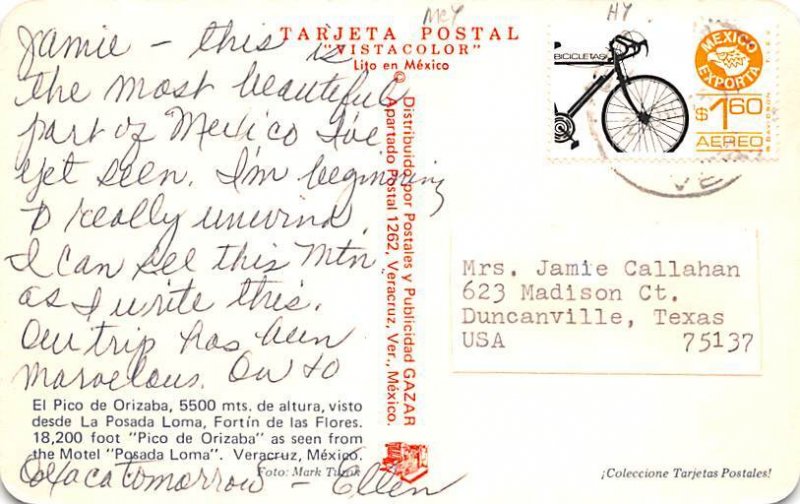 McY
HY
TARJETA POSTAL
"VISTACOLOR"
Lito en México
BICICLETAS
MEXICO
EXPORTA
$1.60
AEREO
Jamie - this is
the most beautiful
part of Mexico I've
yet seen. I'm beginning
to really unwind.
I can see this Mtn.
as I write this.
Our trip has been
marvelous. On to
Oaxaca tomorrow - Ellen
© Distribuido por Postales y Publicidad GAZAR
Apartado Postal 1262, Veracruz, Ver., México.
Mrs. Jamie Callahan
623 Madison Ct.
Duncanville, Texas
USA 75137
El Pico de Orizaba, 5500 mts. de altura, visto
desde La Posada Loma, Fortín de las Flores.
18,200 foot "Pico de Orizaba" as seen from
the Motel "Posada Loma". Veracruz, México.
Foto: Mark Turok
¡Coleccione Tarjetas Postales!